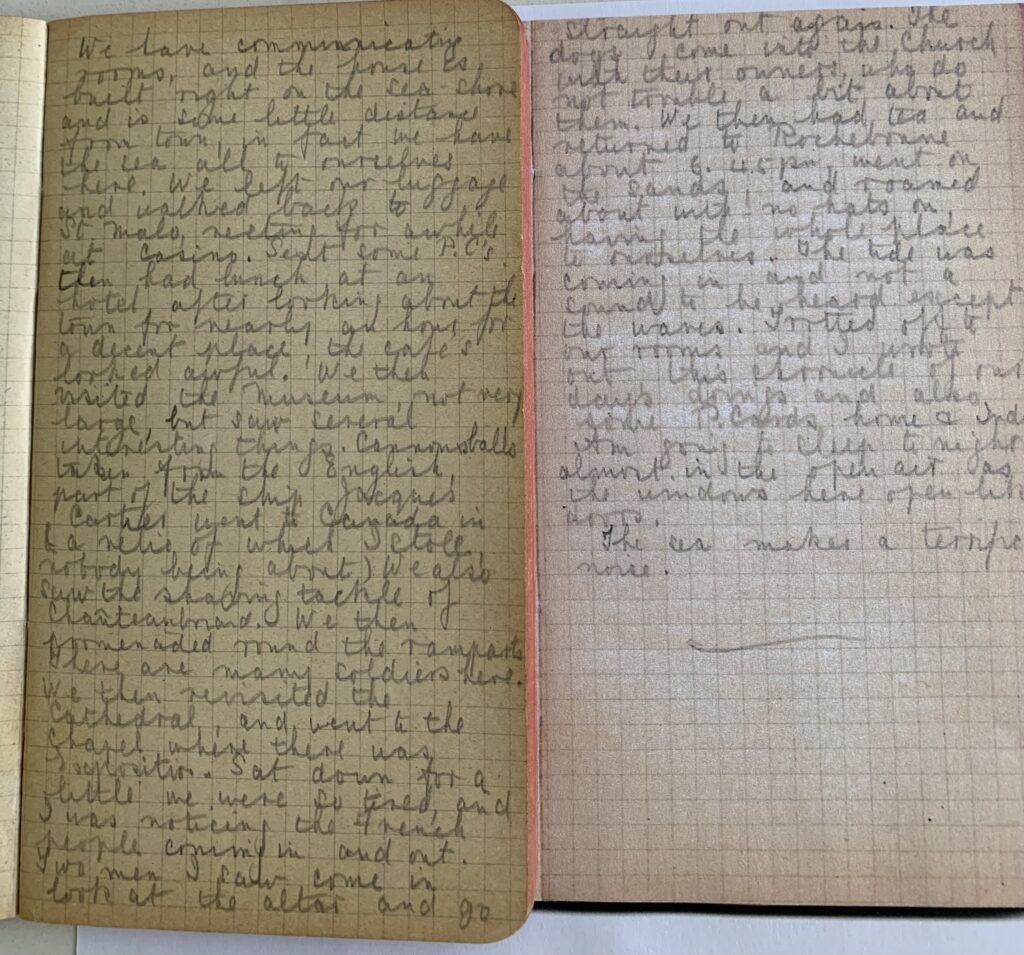 We have communicating
rooms, and the house is
built right on the sea shore
and is some little distance
from town, in fact we have
the sea all to ourselves
here. We left our luggage
and walked back to
St Malo, resting for awhile
at Casino. Sent some P.C's
then had lunch at an
hotel after looking about the
town for nearly an hour for
a decent place, the cafe's
looked awful. We then
visited the Museum, not very
large, but saw several
interesting things. Cannonsballs
taken from the English,
part of the ship Jacques
Cartier went to Canada in
(a relic of which I stole,
nobody being about) We also
saw the shaving tackle of
We then
promenaded round the ramparts
there are many soldiers here.
We then revisited the
Cathedral, and went to the
Chapel where there was
Exposition. Sat down for a
little we were so tired, and
I was noticing the French
people coming in and out.
Two men I saw come in
look at the altar and go
straight out again. The
dogs come into the Church
with their owners, who do
not trouble a bit about
them. We then had tea and
returned to Rochebonne
about 45 pm, went on
the sands, and roamed
about with no hats on,
having the whole place
to ourselves. The tide was
coming in and not a
sound to be heard except
the waves. Trotted off to
our rooms and I wrote
out this chronicle of our
day's doings and also
some P.Cards home &
Am going to sleep to nigh
almost in the open air as
the windows here open lik
doors.
The sea makes a terrific
noise.